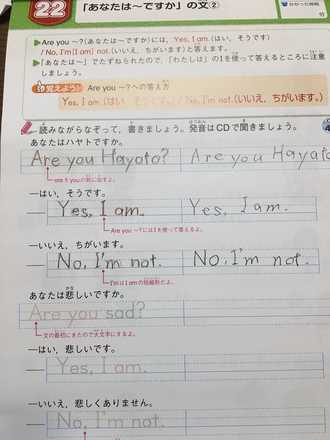 22
「あなたは～ですか」の文②
▶Are you ～?(あなたは～ですか)には、Yes, I am.(はい、そうです)
/ No, I'm[I am] not.(いいえ、ちがいます)と答えます。
▶「あなたは」でたずねられたので、「わたしは」のIを使って答えるところに注意
しましょう。
覚えよう! Are you ～?への答え方
Yes, I am.(はい、そうです。)/ No, I'm not.(いいえ、ちがいます。)
読みながらなぞって、書きましょう。発音はCDで聞きましょう。
あなたはハヤトですか。
Are you Hayato? Are you Hayato
areをyouの前に出すよ。
—はい、そうです。
— Yes, I am. Yes, I am.
Are you ～?にはIを使って答えるよ。
—いいえ、ちがいます。
— No, I'm not. No, I'm not.
I'mはI amの短縮形だよ。
あなたは悲しいですか。
Are you sad?
文の最初にきたので大文字にするよ。
—はい、悲しいです。
— Yes, I am.
—いいえ、悲しくありません。
— No, I'm not.